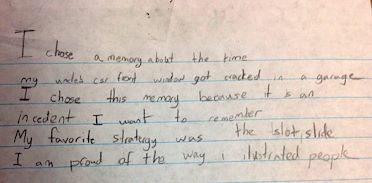 I chose a memory about the time
my uncles car font window got cracked in a garage
I chose this memory because it is an
incedent I want to remember
My favorite strategy was the slot slide
I am proud of the way i illustrated people